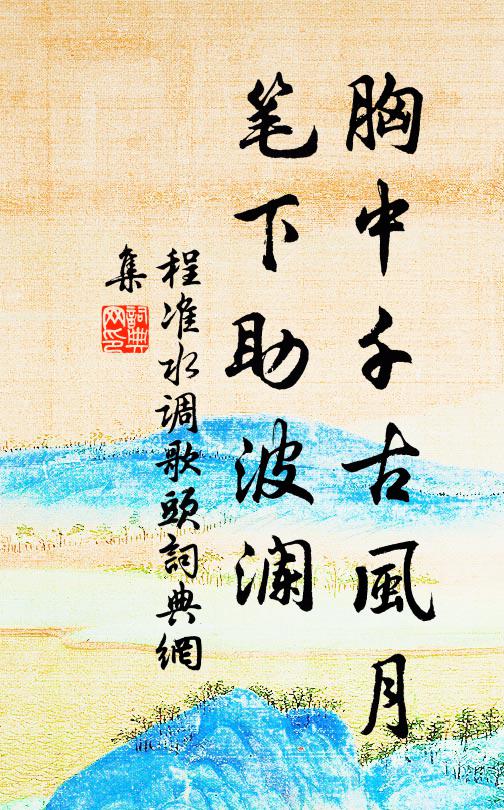 胸中千古風月
笔下助波澜
程准水调歌頭詞典網
集
詞典
网印